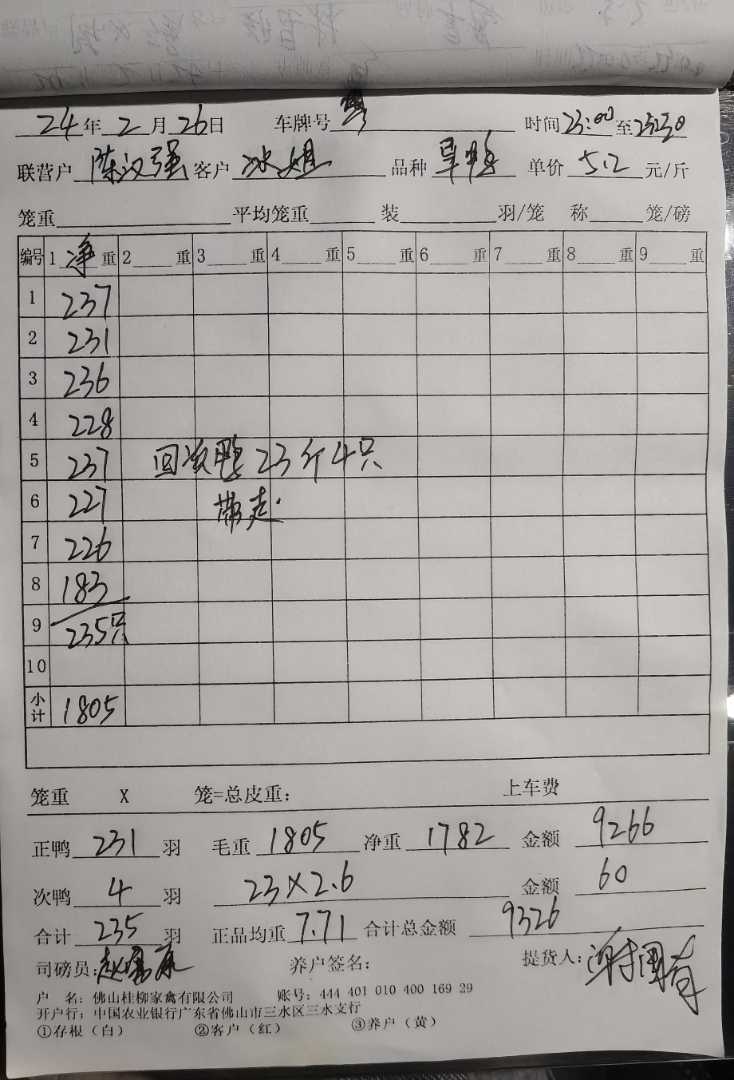 24年2月26日 车牌号 粤 时间23:00至23:30
联营户 陈汉强 客户 冰姐 品种 旱鸭 单价 5.2 元/斤
笼重 平均笼重 装 羽/笼 称 笼/磅
编号 1 净 重 2 重 3 重 4 重 5 重 6 重 7 重 8 重 9 重
1 237
2 231
3 236
4 228
5 237 回次鸭23斤4只
6 227 带走.
7 226
8 183
9 235只
10
小计 1805
笼重 X 笼=总皮重: 上车费
正鸭 231 羽 毛重 1805 净重 1782 金额 9266
次鸭 4 羽 23×2.6 金额 60
合计 235 羽 正品均重 7.71 合计总金额 9326
司磅员: 养户签名: 提货人:
户 名: 佛山桂柳家禽有限公司 账号: 444 401 010 400 169 29
开户行: 中国农业银行广东省佛山市三水区三水支行
①存根(白) ②客户(红) ③养户(黄)